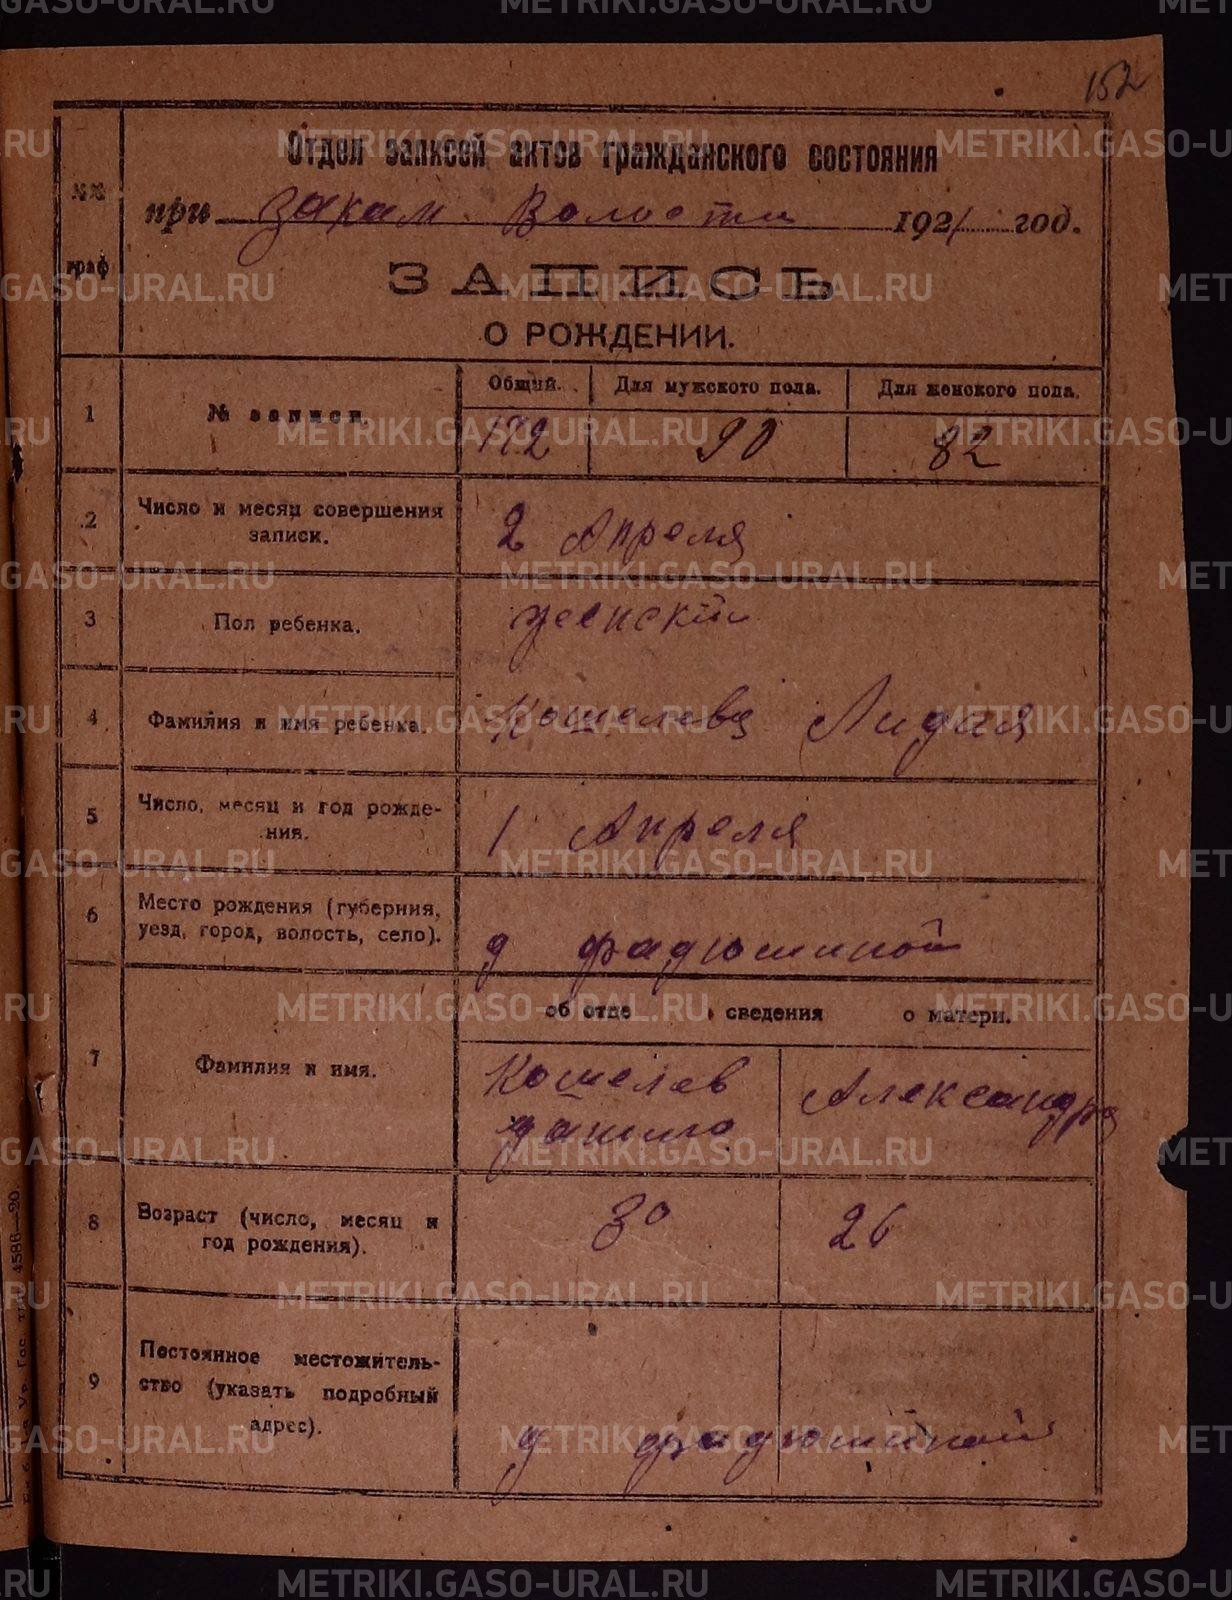 152
Отдел записей актов гражданского состояния
при закам. Волости 1921 год.
№№ граф
ЗАПИСЬ
О РОЖДЕНИИ.
1 № записи. Общий. Для мужского пола. Для женского пола.
172 90 82
2 Число и месяц совершения записи. 2 Апреля
3 Пол ребенка. женский
4 Фамилия и имя ребенка. Кошелева Лидая
5 Число, месяц и год рождения. 1 Апреля
6 Место рождения (губерния, уезд, город, волость, село). д фадюшиной
об отце сведения о матери.
7 Фамилия и имя. Кошелев Данило Александра
8 Возраст (число, месяц и год рождения). 30 26
9 Постоянное местожительство (указать подробный адрес). д фадюшиной
4586—20.
METRIKI.GASO-URAL.RU